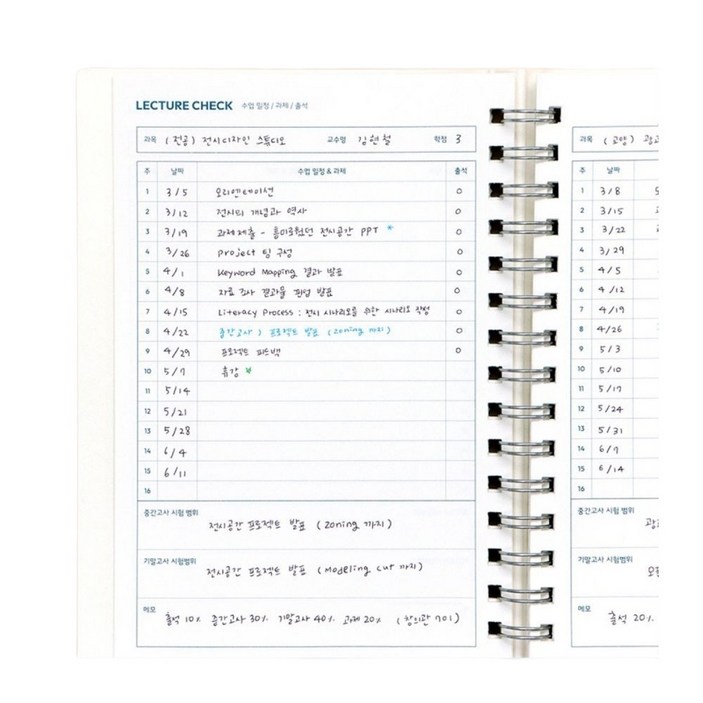 LECTURE CHECK 수업 일정 / 과제 / 출석
과목 (전공) 전시디자인 스튜디오 교수명 김현철 학점 3
주 날짜 수업 일정 & 과제 출석
1 3/5 오리엔테이션 O
2 3/12 전시의 개념과 역사 O
3 3/19 과제제출 - 흥미로웠던 전시공간 PPT * O
4 3/26 project 팀 구성 O
5 4/1 Keyword Mapping 결과 발표 O
6 4/8 자료조사 결과물 취합 발표 O
7 4/15 Literacy Process : 전시 시나리오를 위한 시나리오 작성 O
8 4/22 중간고사 ) 프로젝트 발표 (zoning 까지) O
9 4/29 프로젝트 피드백 O
10 5/7 휴강 *
11 5/14
12 5/21
13 5/28
14 6/4
15 6/11
16
중간고사 시험 범위
전시공간 프로젝트 발표 (zoning 까지)
기말고사 시험범위
전시공간 프로젝트 발표 (Modeling cut 까지)
메모
출석 10% 중간고사 30% 기말고사 40% 과제 20% (창의관 701)
과목 (교양)
주 날짜
1 3/8
2 3/15
3 3/22
4 3/29
5 4/5
6 4/12
7 4/19
8 4/26
9 5/3
10 5/10
11 5/17
12 5/24
13 5/31
14 6/7
15 6/14
16
중간고사 시험 범위
기말고사 시험범위
메모
출석 20%